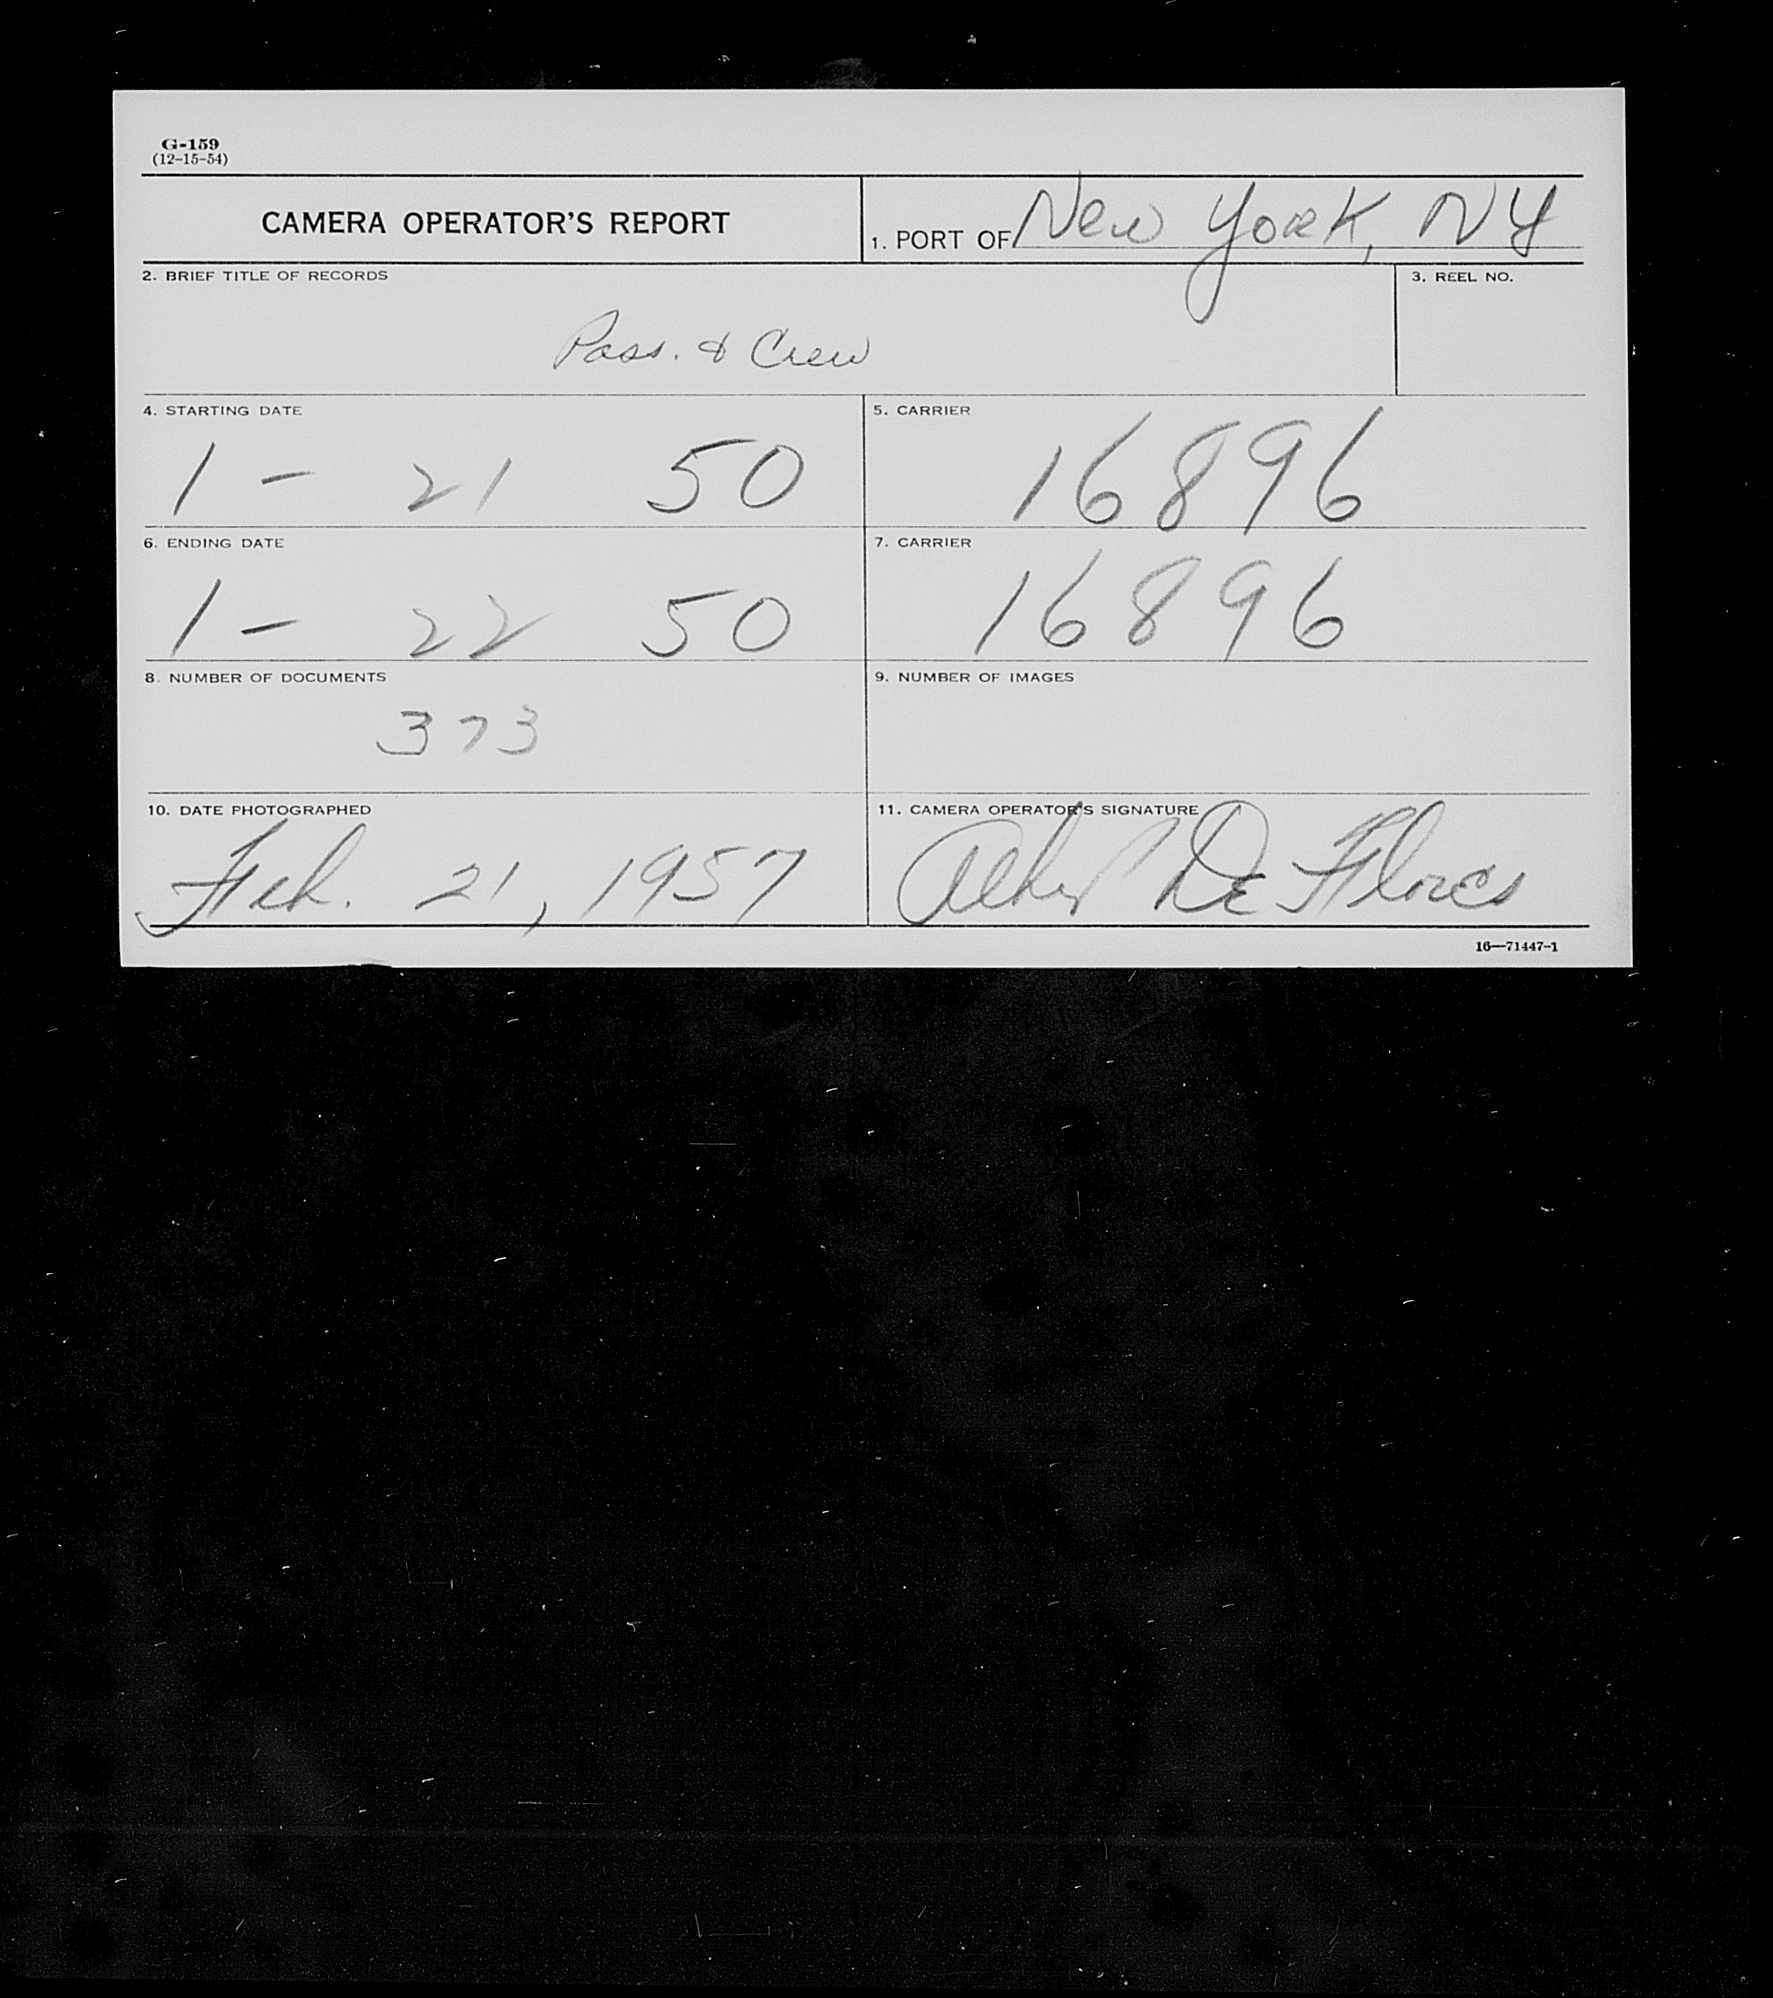 G-159
(12-15-54)
CAMERA OPERATOR'S REPORT
1. PORT OF New York, NY
2. BRIEF TITLE OF RECORDS
3. REEL NO.
Pass. & Crew
4. STARTING DATE
5. CARRIER
1 - 21 50
16896
6. ENDING DATE
7. CARRIER
1 - 22 50
16896
8. NUMBER OF DOCUMENTS
9. NUMBER OF IMAGES
373
10. DATE PHOTOGRAPHED
11. CAMERA OPERATOR'S SIGNATURE
Feb. 21, 1957
De Flores
16—71447-1